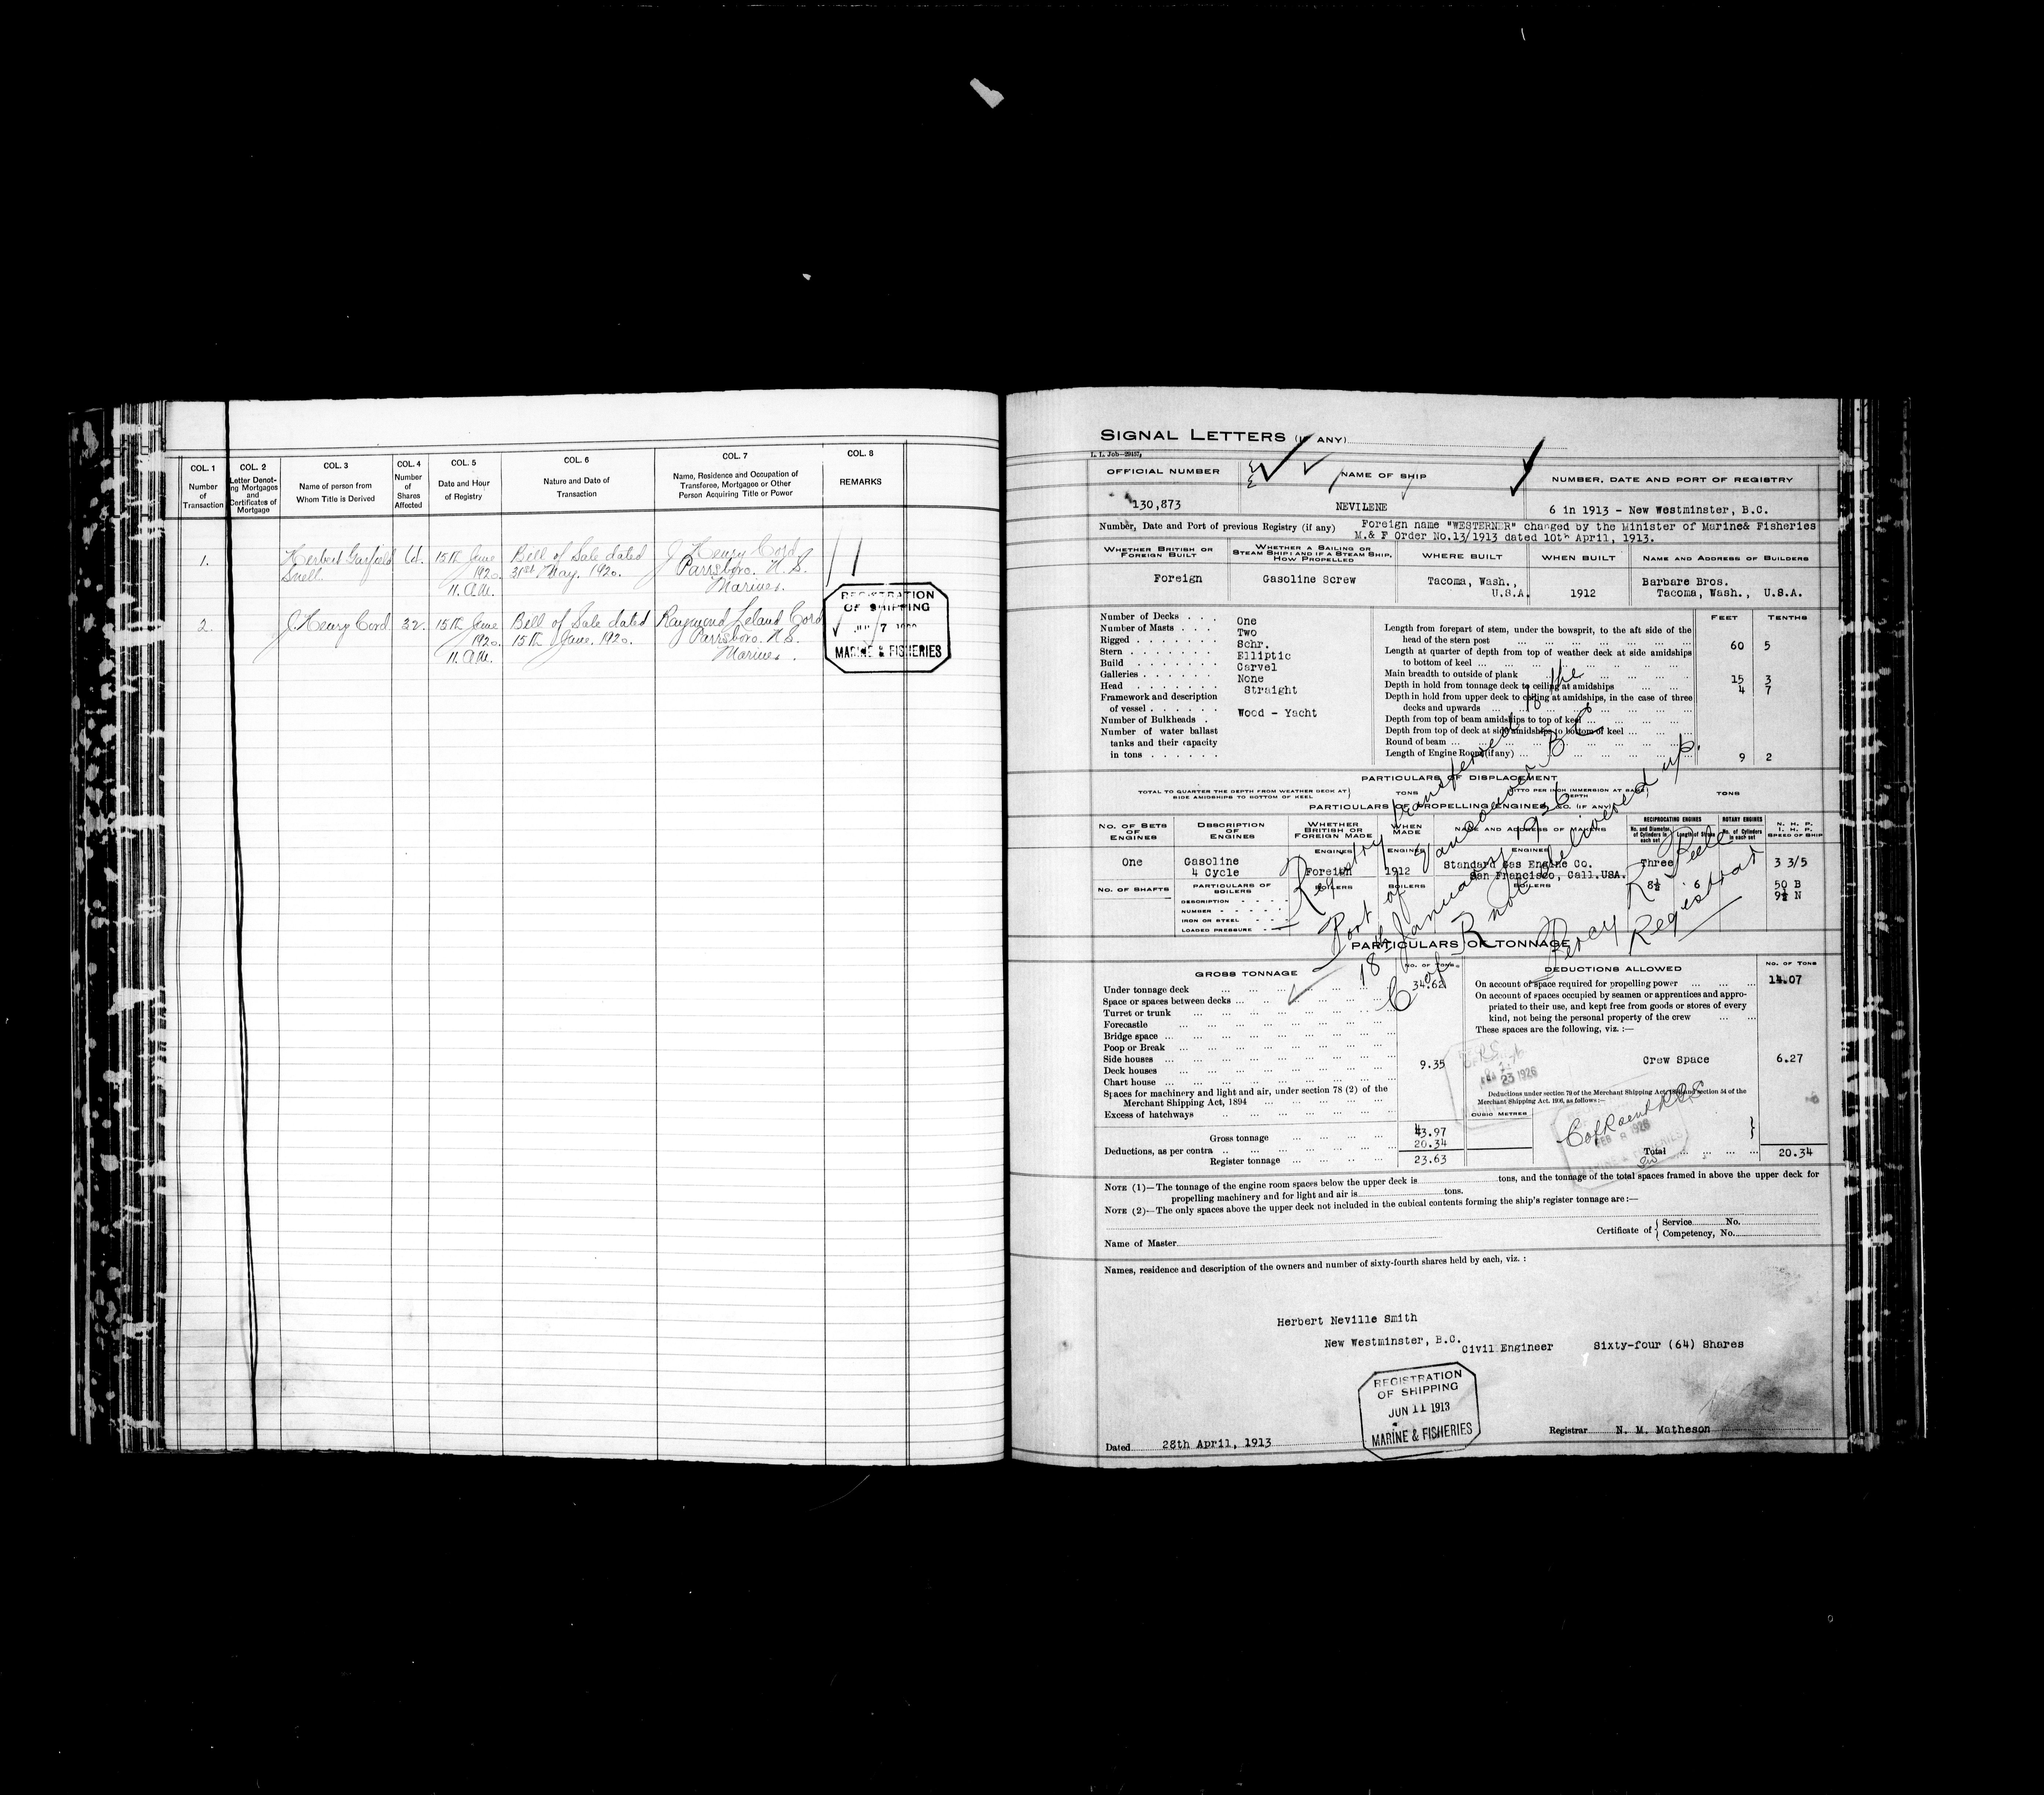 COL. 1 COL. 2 COL. 3 COL. 4 COL. 5 COL. 6 COL. 7 COL. 8
Number of Transaction
Letter Denoting Mortgages and Certificates of Mortgage
Name of person from Whom Title is Derived
Number of Shares Affected
Date and Hour of Registry
Nature and Date of Transaction
Name, Residence and Occupation of Transferee, Mortgagee or Other Person Acquiring Title or Power
REMARKS
1. Herbert Garfield 64. 15th June Bill of Sale dated J Henry Cord
Snell. 1920. 31st May. 1920. Parrsboro. N.S.
11. A.M. Mariner.
2. J. Henry Cord 32. 15th June Bill of Sale dated Raymond Leland Cord
1920. 15th June. 1920. Parrsboro. N.S.
11. A.M. Mariner.
REGISTRATION
OF SHIPPING
7
MARINE & FISHERIES
SIGNAL LETTERS (IF ANY)
L. I. Job—29157
OFFICIAL NUMBER NAME OF SHIP NUMBER, DATE AND PORT OF REGISTRY
130,873 NEVILENE 6 in 1913 - New Westminster, B.C.
Number, Date and Port of previous Registry (if any) Foreign name "WESTERNER" changed by the Minister of Marine& Fisheries
M.& F Order No.13/1913 dated 10th April, 1913.
WHETHER BRITISH OR FOREIGN BUILT
WHETHER A SAILING OR STEAM SHIP; AND IF A STEAM SHIP, HOW PROPELLED
WHERE BUILT WHEN BUILT NAME AND ADDRESS OF BUILDERS
Foreign Gasoline Screw Tacoma, Wash., U.S.A. 1912 Barbare Bros.
Tacoma, Wash., U.S.A.
FEET TENTHS
Number of Decks One
Number of Masts Two
Rigged Schr.
Stern Elliptic
Build Carvel
Galleries None
Head Straight
Framework and description
of vessel Wood - Yacht
Number of Bulkheads
Number of water ballast
tanks and their capacity
in tons
Length from forepart of stem, under the bowsprit, to the aft side of the
head of the stern post 60 5
Length at quarter of depth from top of weather deck at side amidships
to bottom of keel
Main breadth to outside of plank 15 3
Depth in hold from tonnage deck to ceiling at amidships 4 7
Depth in hold from upper deck to ceiling at amidships, in the case of three
decks and upwards
Depth from top of beam amidships to top of keel
Depth from top of deck at side amidships to bottom of keel
Round of beam
Length of Engine Room (if any) 9 2
PARTICULARS OF DISPLACEMENT
TOTAL TO QUARTER THE DEPTH FROM WEATHER DECK AT SIDE AMIDSHIPS TO BOTTOM OF KEEL TONS DITTO PER INCH IMMERSION AT SAME DEPTH TONS
PARTICULARS OF PROPELLING ENGINES, &C. (IF ANY)
NO. OF SETS OF ENGINES
DESCRIPTION OF ENGINES
WHETHER BRITISH OR FOREIGN MADE
WHEN MADE
NAME AND ADDRESS OF MAKERS
RECIPROCATING ENGINES
No. and Diameter of Cylinders in each set
Length of Stroke
ROTARY ENGINES
No. of Cylinders in each set
N. H. P.
I. H. P.
SPEED OF SHIP
ENGINES ENGINES ENGINES
One Gasoline Foreign 1912 Standard Gas Engine Co. Three 3 3/5
4 Cycle San Francisco, Call.USA.
8½ 6 50 B
9½ N
NO. OF SHAFTS PARTICULARS OF BOILERS BOILERS BOILERS BOILERS
DESCRIPTION
NUMBER
IRON OR STEEL
LOADED PRESSURE
Registry transferred to the
Port of Vancouver B C
18th January 1926
C of R not delivered up.
Percy R Peele
Registrar
PARTICULARS OF TONNAGE
GROSS TONNAGE NO. OF TONS DEDUCTIONS ALLOWED NO. OF TONS
Under tonnage deck 34.62
Space or spaces between decks
Turret or trunk
Forecastle
Bridge space
Poop or Break
Side houses 9.35
Deck houses
Chart house
Spaces for machinery and light and air, under section 78 (2) of the
Merchant Shipping Act, 1894
Excess of hatchways
Gross tonnage 43.97
Deductions, as per contra 20.34
Register tonnage 23.63
On account of space required for propelling power 14.07
On account of spaces occupied by seamen or apprentices and appro-
priated to their use, and kept free from goods or stores of every
kind, not being the personal property of the crew
These spaces are the following, viz. :—
Crew Space 6.27
23 1926
Deductions under section 79 of the Merchant Shipping Act, 1894 and section 54 of the
Merchant Shipping Act. 1906, as follows:—
CUBIC METRES
FEB 8 1926
Total 20.34
NOTE (1)—The tonnage of the engine room spaces below the upper deck is tons, and the tonnage of the total spaces framed in above the upper deck for
propelling machinery and for light and air is tons.
NOTE (2)—The only spaces above the upper deck not included in the cubical contents forming the ship's register tonnage are:—
Certificate of { Service No.
Name of Master Competency, No.
Names, residence and description of the owners and number of sixty-fourth shares held by each, viz. :
Herbert Neville Smith
New Westminster, B.C. Civil Engineer Sixty-four (64) Shares
REGISTRATION
OF SHIPPING
JUN 11 1913
MARINE & FISHERIES
Dated 28th April, 1913 Registrar N. M. Matheson